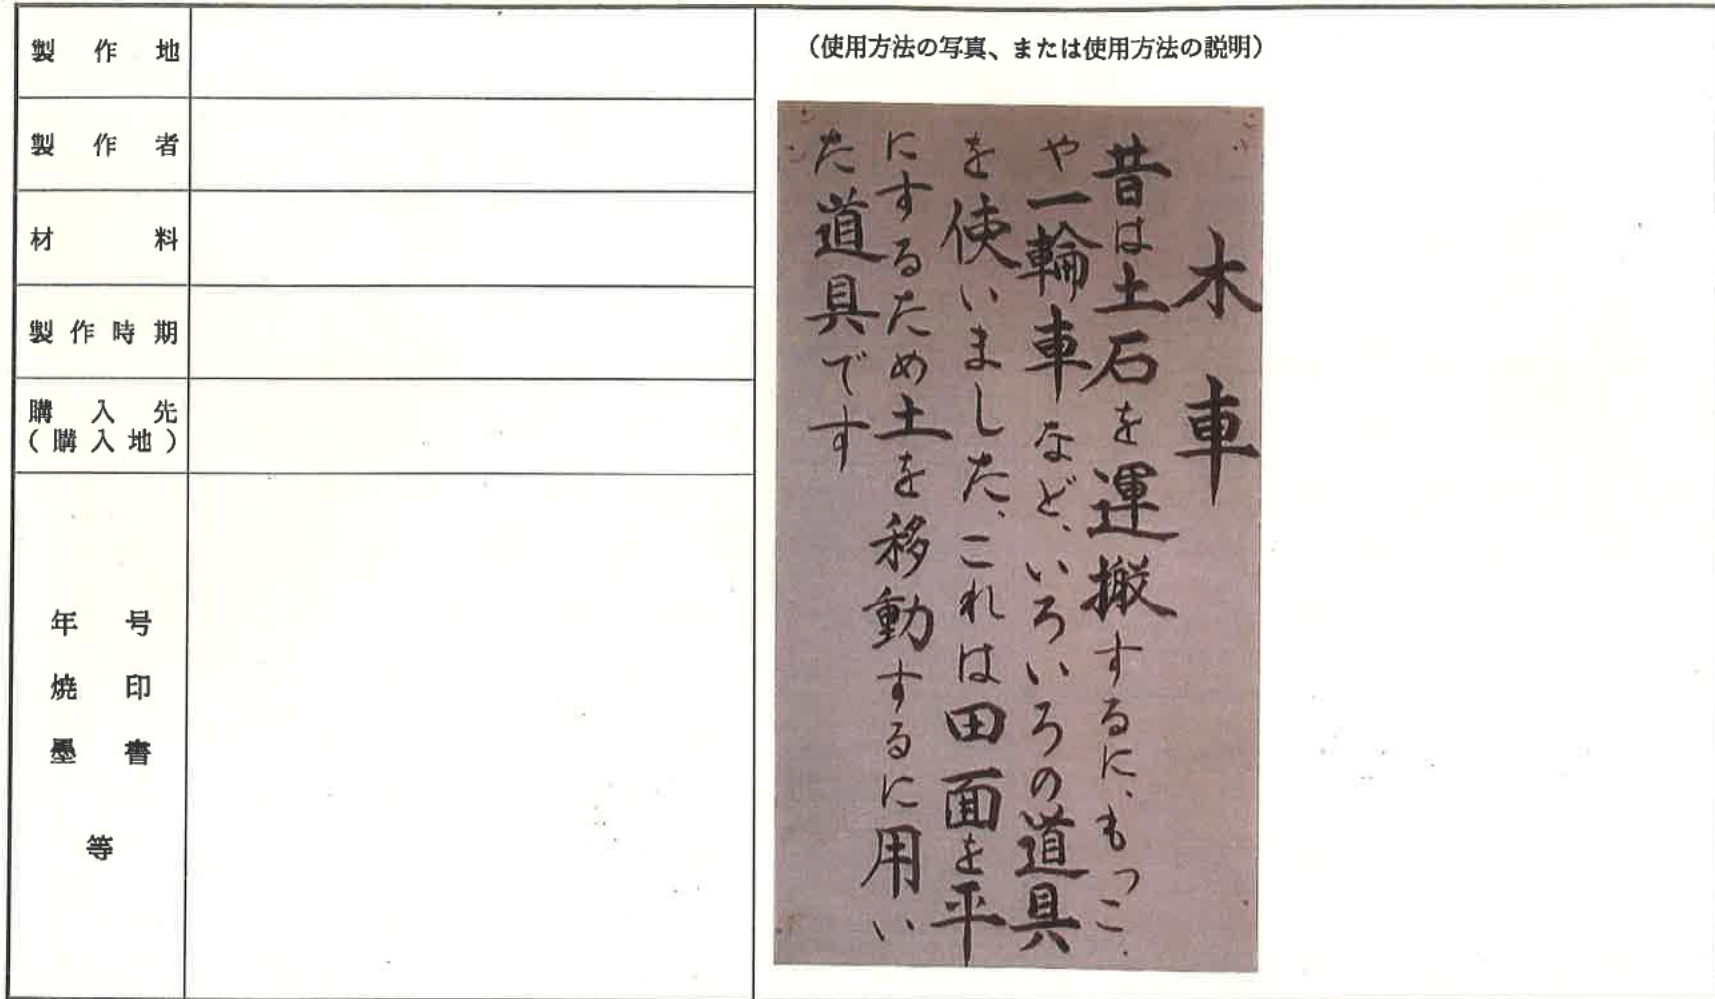 製作地
製作者
材料
製作時期
購入先
(購入地)
年号
焼印
墨書
等
(使用方法の写真、または使用方法の説明)
木車
昔は土石を運搬するに、もっこ、
や一輪車など、いろいろの道具
を使いました、これは田面を平
にするため土を移動するに用い
た道具です